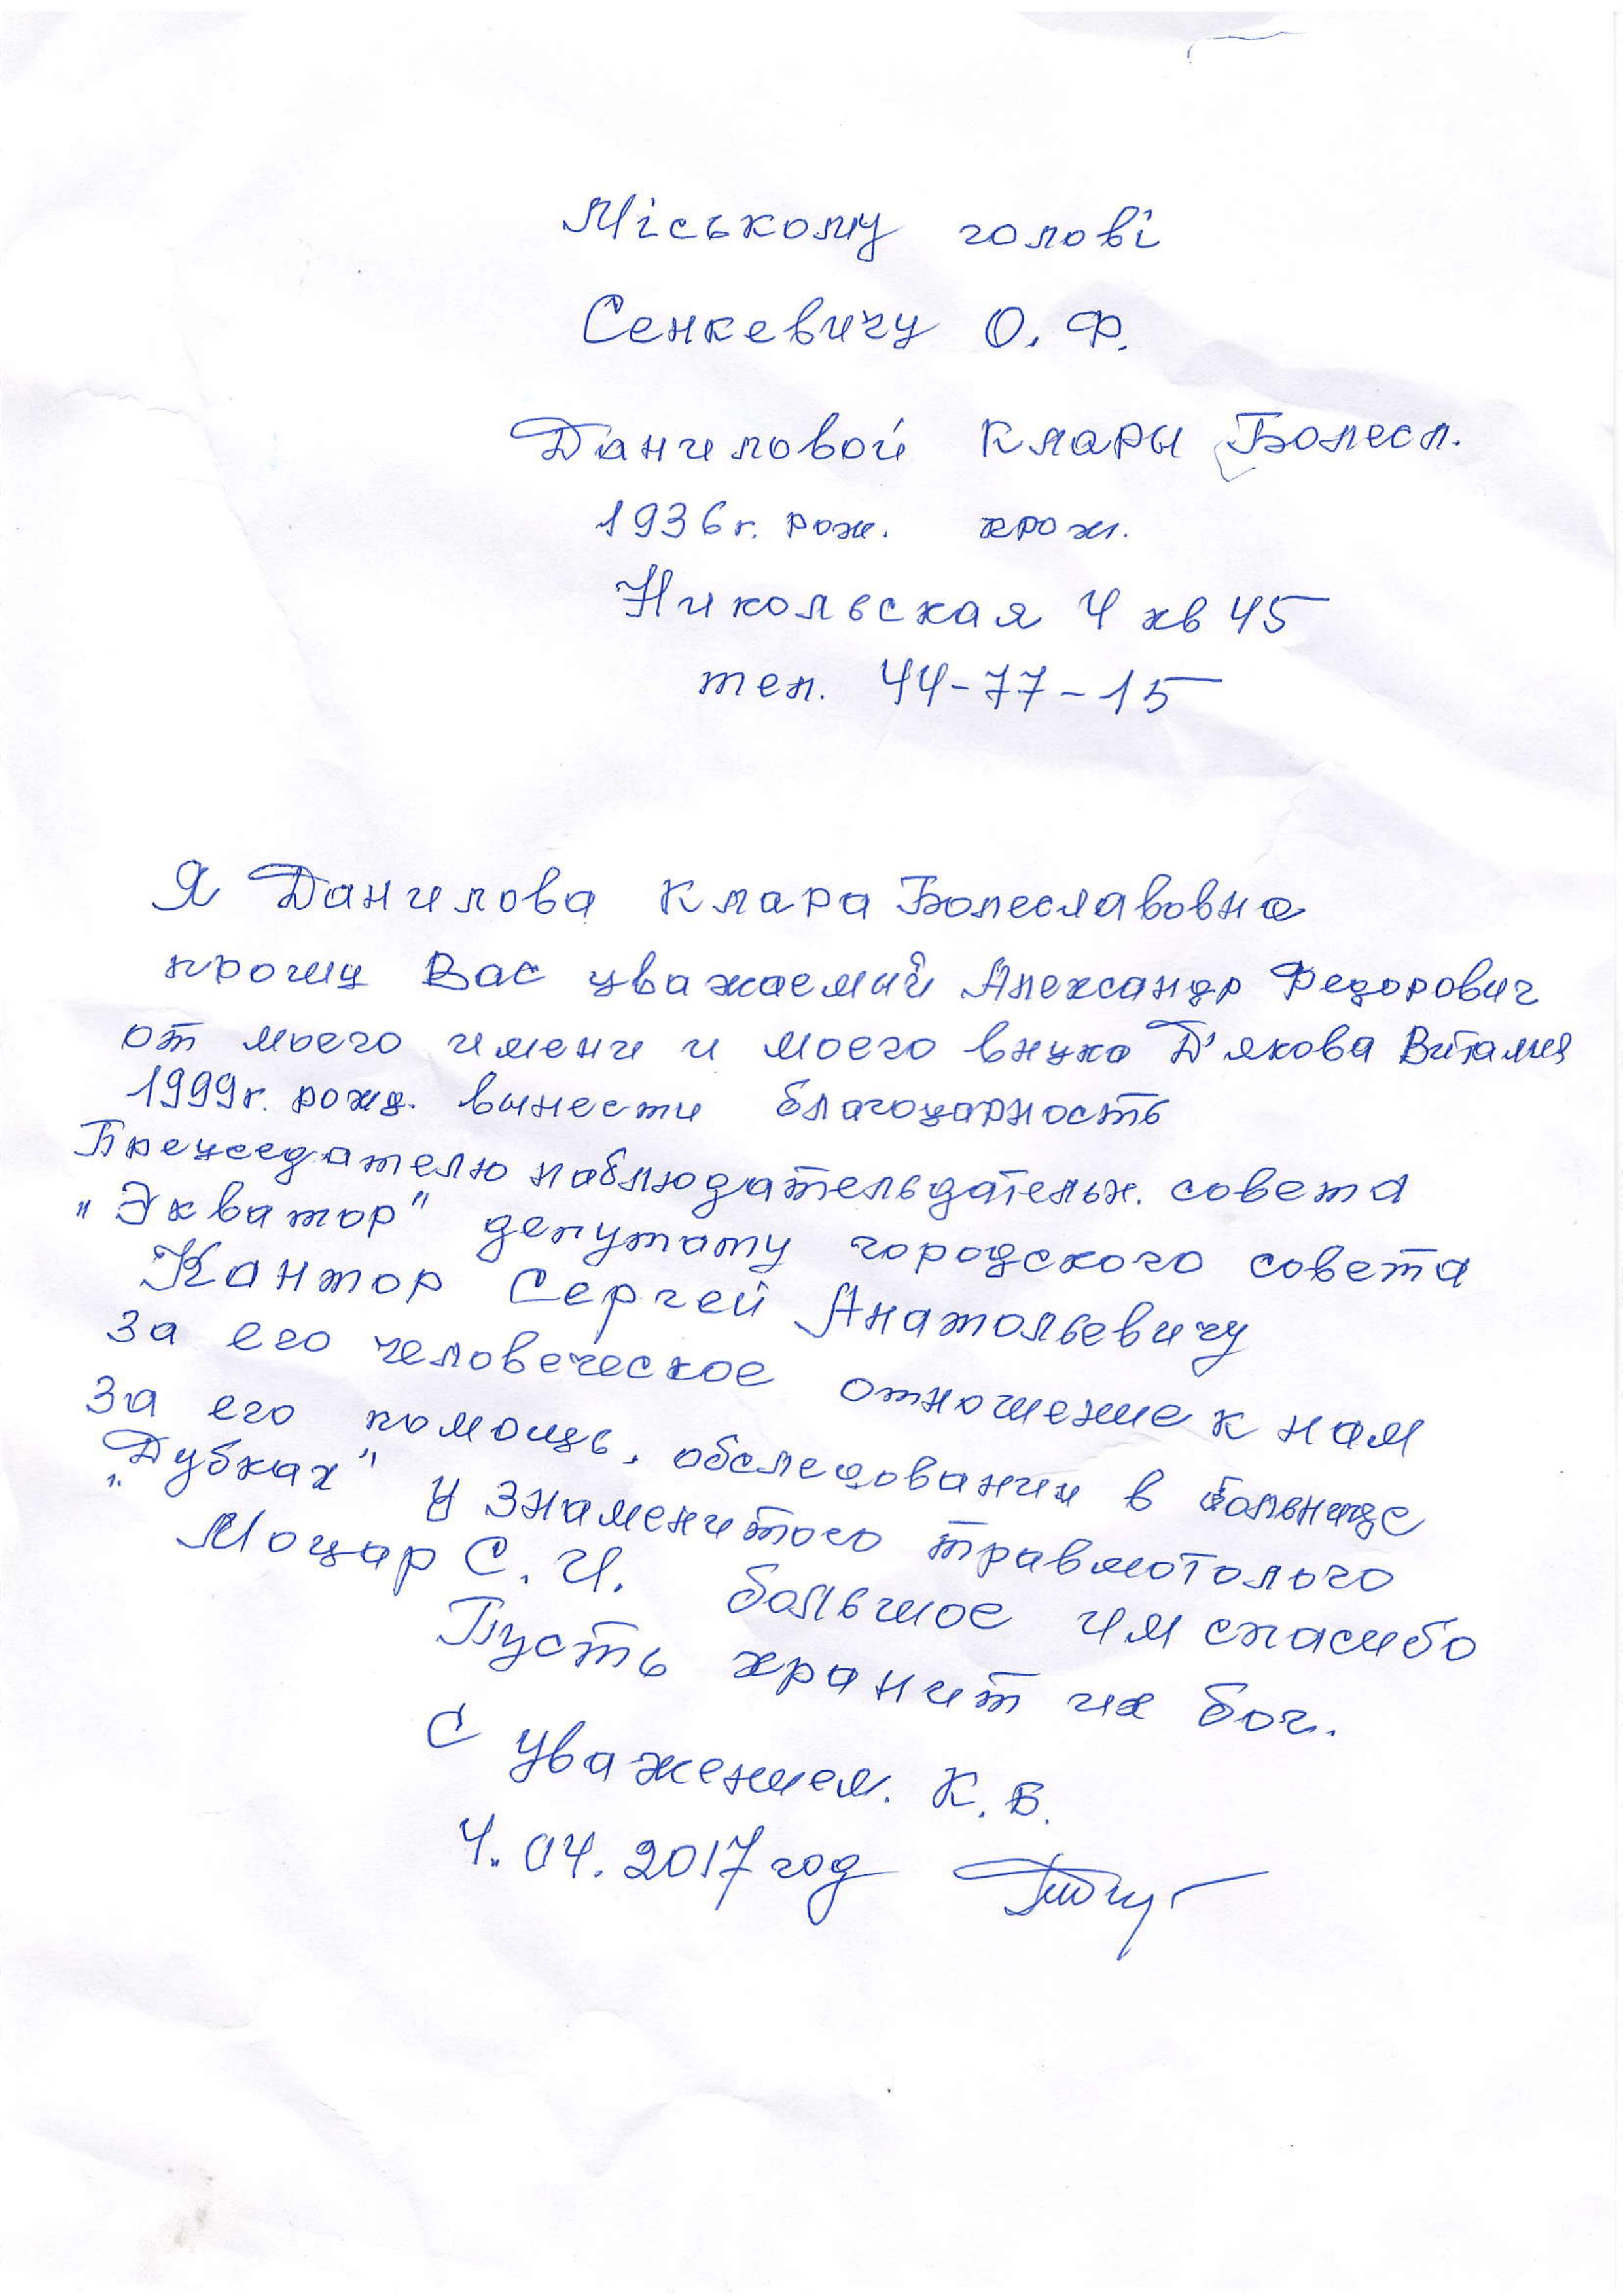 Міському голові
Сенкевичу О. Ф.
Даниловой Клары Болесл.
1936г. рож. прож.
Никольская 4 кв 45
тел. 44-77-15
Я Данилова Клара Болеславовна
прошу Вас уважаемый Александр Федорович
от моего имени и моего внука Д'якова Виталия
1999г. рожд. вынести благодарность
Председателю наблюдательдательн. совета
"Экватор" депутату городского совета
Кантор Сергей Анатольевичу
за его человеческое отношение к нам
за его помощь, обследовании в больнице
"Дубках" у знаменитого травмотолого
Моцар С. И. большое им спасибо
Пусть хранит их бог.
С уважением. К. Б.
4. 04. 2017 год